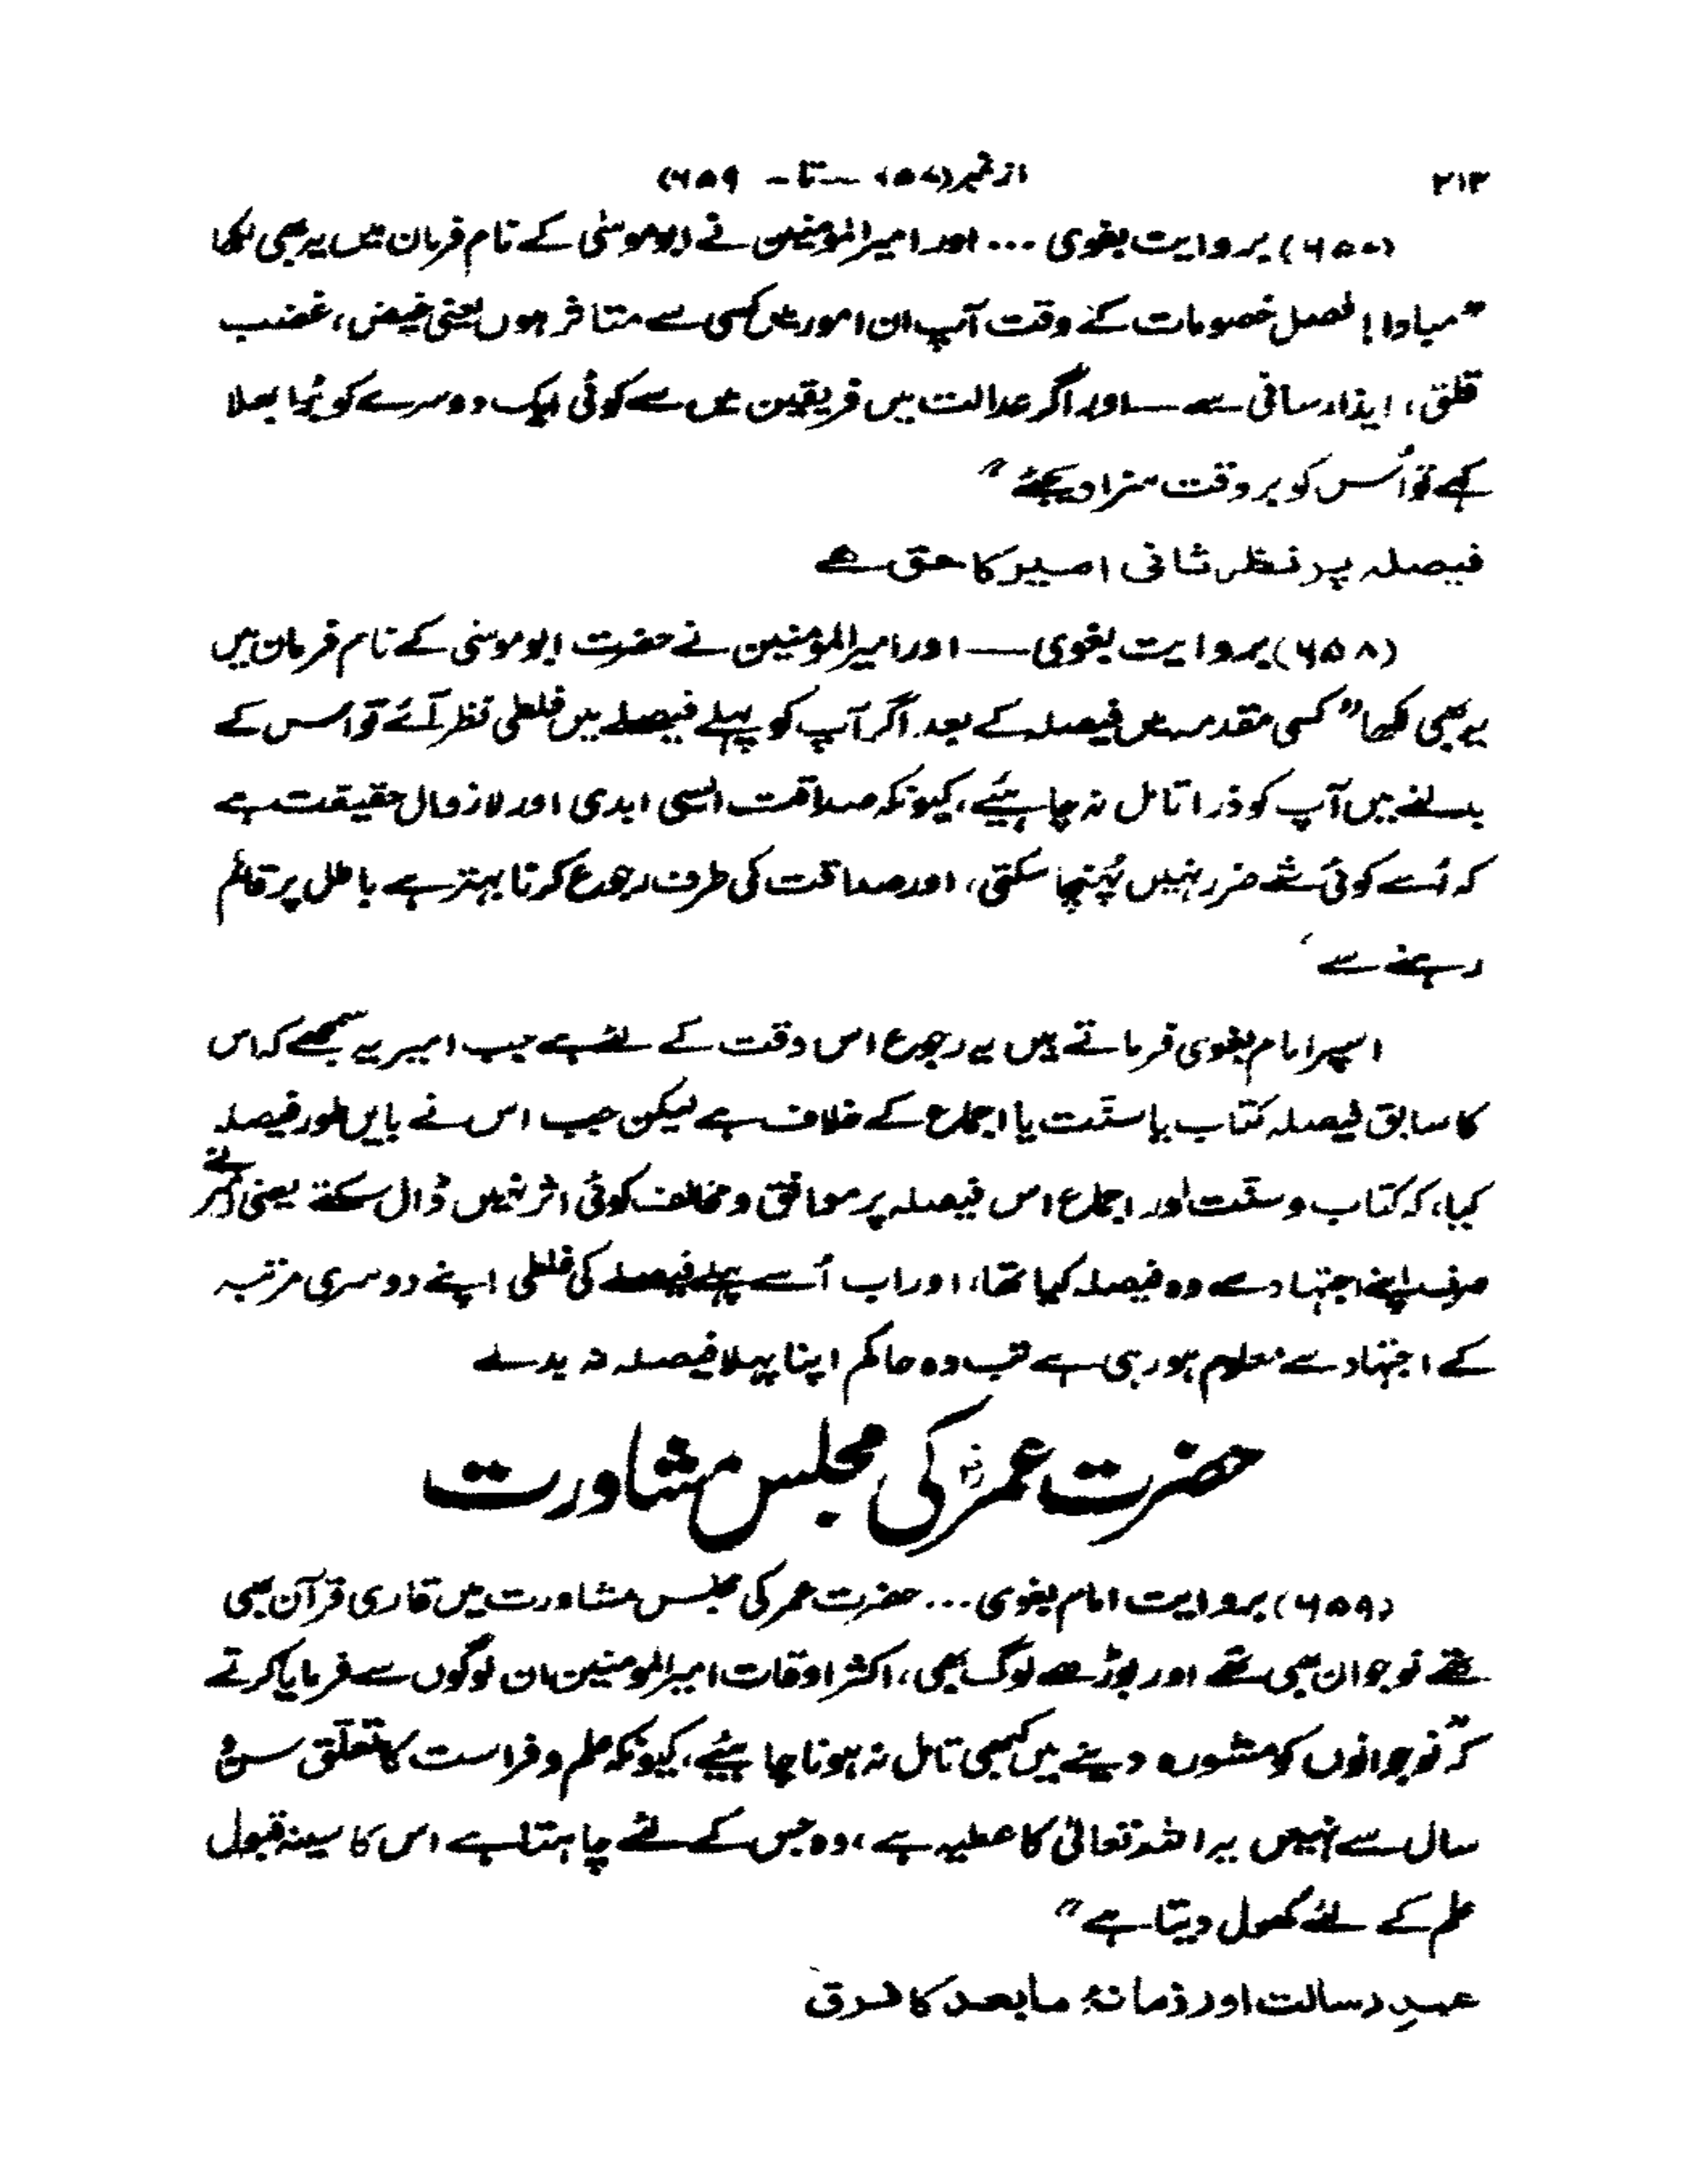 ۲۱۳ از نمبر (۶۵۷) — تا — ۶۵۹)
(۶۵۷) بروایت بغوی ... اور امیرالمؤمنین نے ابوموسٰی کے نام فرمان میں یہ بھی لکھا
"مبادا! فصل خصومات کے وقت آپ ان امور میں کسی سے متاثر ہوں یعنی غیض، غضب
قلق، ایذا رسانی سے — اور اگر عدالت میں فریقین میں سے کوئی ایک دوسرے کو بُرا بھلا
کہے تو اُس کو بروقت سزا دیجئے"
فیصلہ پر نظر ثانی امیر کا حق ہے
(۶۵۸) بروایت بغوی — اور امیرالمؤمنین نے حضرت ابوموسٰی کے نام فرمان میں
یہ بھی لکھا "کسی مقدمہ میں فیصلہ کے بعد اگر آپ کو پہلے فیصلے میں غلطی نظر آئے تو اس کے
بدلنے میں آپ کو ذرا تامل نہ چاہئیے، کیونکہ صداقت ایسی ابدی اور لازوال حقیقت ہے
کہ اُسے کوئی شے ضرر نہیں پُہنچا سکتی، اور صداقت کی طرف رجوع کرنا بہتر ہے باطل پر قائم
رہنے سے،
اسپر امام بغوی فرماتے ہیں یہ رجوع اس وقت کے لئے ہے جب امیر یہ سمجھے کہ اس
کا سابق فیصلہ کتاب یا سنّت یا اجماع کے خلاف ہے لیکن جب اس نے بایں طور فیصلہ
کیا، کہ کتاب و سنّت اور اجماع اس فیصلہ پر موافق و مخالف کوئی اثر نہیں ڈال سکتے یعنی امیر نے
صرف اپنے اجتہاد سے وہ فیصلہ کیا تھا، اور اب اُسے پہلے فیصلے کی غلطی اپنے دوسری مرتبہ
کے اجتہاد سے معلوم ہو رہی ہے تب وہ حاکم اپنا پہلا فیصلہ نہ بدلے
حضرت عمرؓ کی مجلس مشاورت
(۶۵۹) بروایت امام بغوی ... حضرت عمر کی مجلس مشاورت میں قاری قرآن بھی
تھے نوجوان بھی تھے اور بوڑھے لوگ بھی، اکثر اوقات امیرالمومنین ان لوگوں سے فرمایا کرتے
کہ "نوجوانوں کو مشورہ دینے میں کبھی تامل نہ ہونا چاہئیے، کیونکہ علم و فراست کا تعلّق سن و
سال سے نہیں یہ اللہ تعالٰی کا عطیہ ہے، وہ جس کے لئے چاہتا ہے اس کا سینہ قبول
علم کے لئے کھول دیتا ہے"
عہدِ رسالت اور زمانۂ مابعد کا فرق